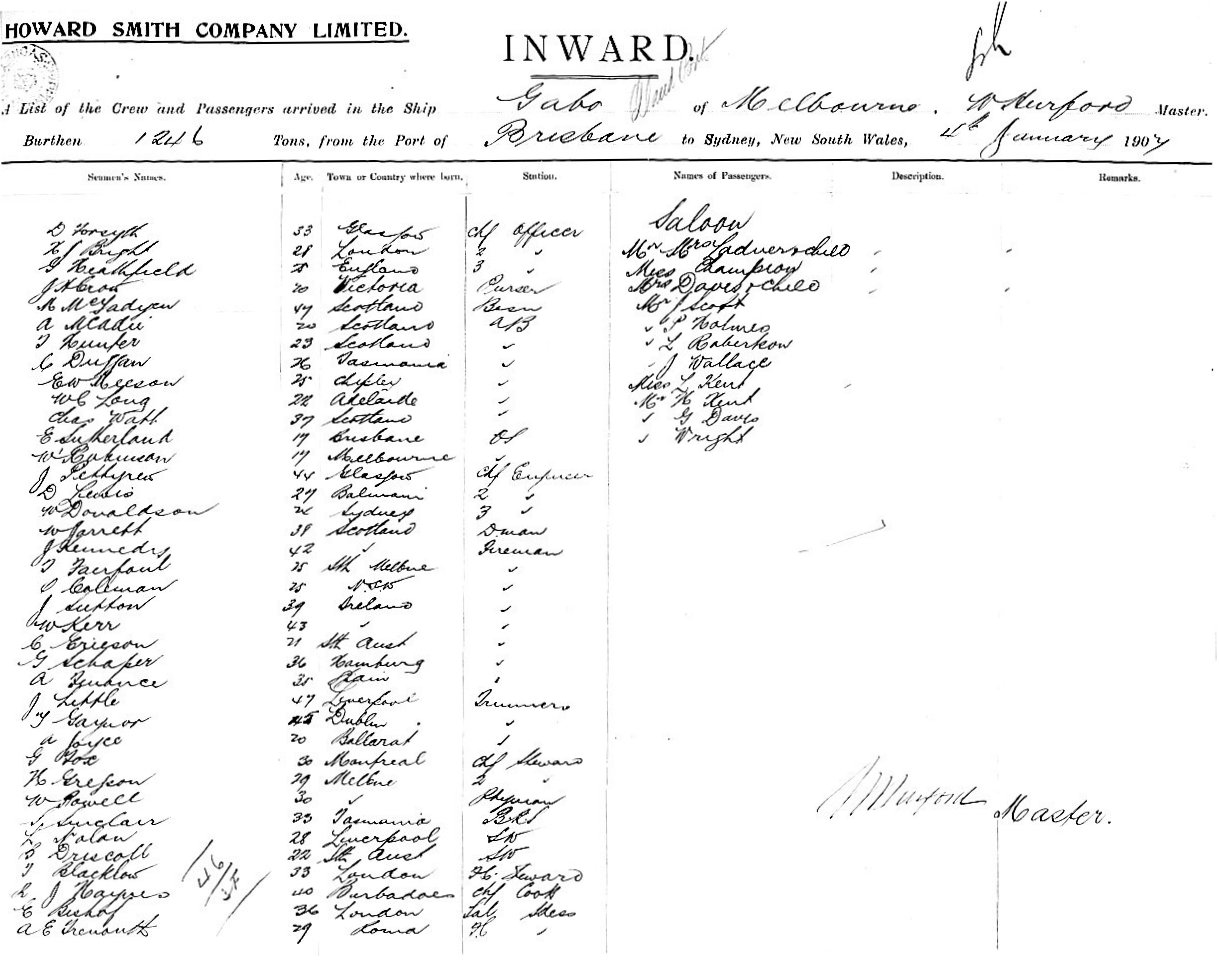 HOWARD SMITH COMPANY LIMITED.
INWARD.
A List of the Crew and Passengers arrived in the Ship Gabo of Melbourne. W Hurford Master.
Burthen 1246 Tons, from the Port of Brisbane to Sydney, New South Wales, 4th January 1907
Seamen's Names. Age. Town or Country where born. Station. Names of Passengers. Description. Remarks.
Saloon
D Forsyth 33 Glasgow Chf Officer
Bright 28 London 2 "
Mr Mrs & child
G Heathfield 25 England 3 "
Miss Champion
Victoria Purser
Mrs Davis & child
47 Scotland
Mr J Scott
20 Scotland AB
" Holmes
T Hunter 23 Scotland "
" L Robertson
C Duffan 26 Tasmania "
" J Wallace
EW Meeson 25 "
Miss L Kent
WC Long 22 Adelaide "
Mr H Kent
Chas Watt 37 Scotland "
" G Davis
E Sutherland 19 Brisbane OS
" Wright
W Robinson 19 Melbourne "
J Pettyrew 44 Glasgow Chf Engineer
D Lewis 27 Balmain 2 "
W Donaldson 26 Sydney 3 "
W Jarrett 38 Scotland Dman
J Kennedy 42 " Fireman
T Fairfoul 25 Sth Melbne "
Coleman 25 NSW "
J Sutton 39 Ireland "
W Kerr 43 " "
C Ericson 21 Sth Aust "
G Schaper 36 Hamburg "
A 35 Spain "
J Little 47 Liverpool Trimmers
Gaynor 45 Dublin "
A Joyce 20 Ballarat "
G Fox 30 Montreal Chf Steward
H 29 Melbne 2 "
W Powell 30 "
Sinclair 33 Tasmania
Nolan 28 Liverpool SW
Driscoll 22 Sth Aust SW
T Blacklow 33 London Steward
J Haynes 40 Barbadoes Chf Cook
E Bishop 36 London Sal Stess
A E Trenouth 29 Roma "
46
Hurford Master.